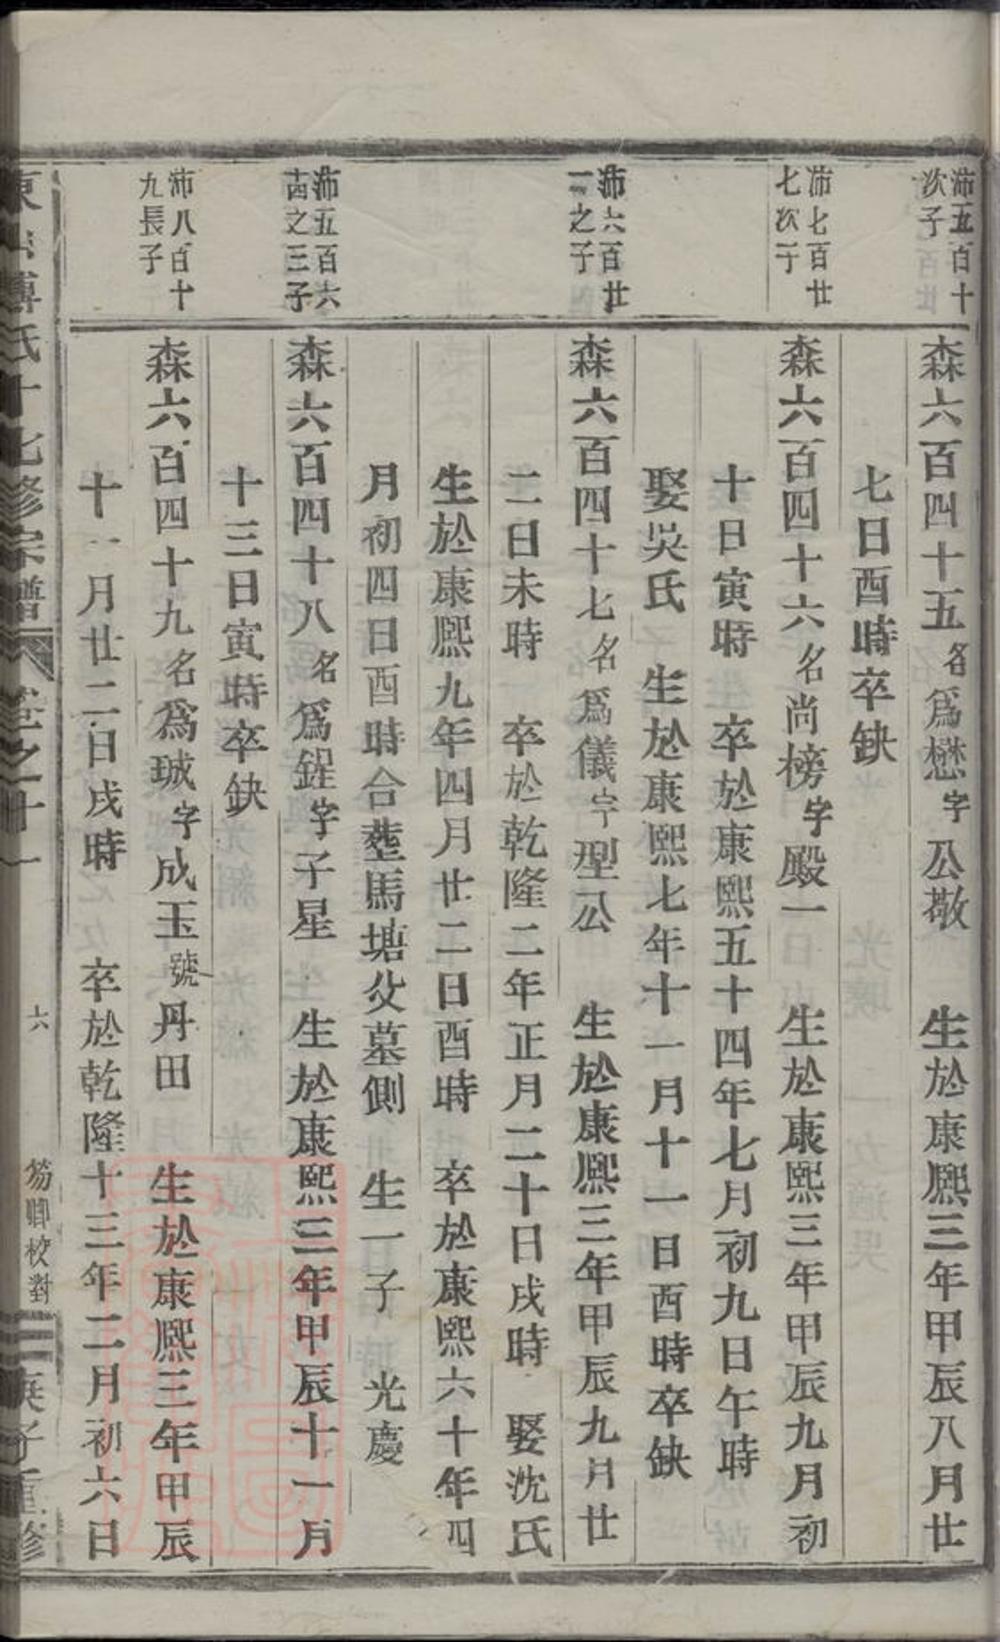 沛五百十
次子
森六百四十五名爲懋字公敬　生於康熙三年甲辰八月廿
七日酉時卒缺
沛七百廿
七次子
森六百四十六名尚榜字殿一　生於康熙三年甲辰九月初
十日寅時　卒於康熙五十四年七月初九日午時
娶吳氏　生於康熙七年十一月十一日酉時卒缺
沛六百廿
一之子
森六百四十七名爲儀字型公　生於康熙三年甲辰九月廿
二日未時　卒於乾隆二年正月二十日戌時　娶沈氏
生於康熙九年四月廿二日酉時　卒於康熙六十年四
月初四日酉時合塟馬塘父墓側　生一子　光慶
沛五百六
之三子
森六百四十八名爲鍟字子星　生於康熙三年甲辰十一月
十三日寅時卒缺
沛八百十
九長子
森六百四十九名爲珹字成玉號丹田　生於康熙三年甲辰
十一月廿二日戌時　卒於乾隆十三年二月初六日
傅氏十七修宗譜　卷之十一　六　校對　庚子重修